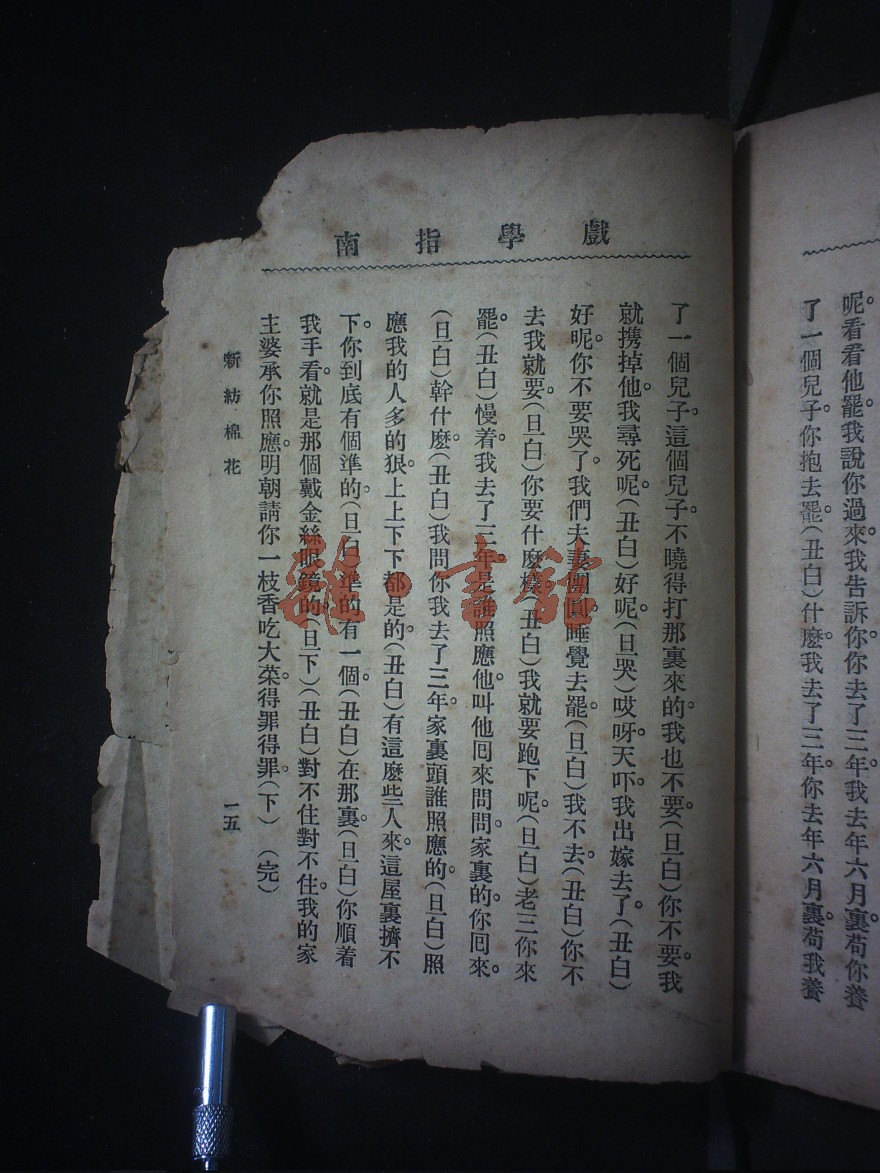 呢。看看他罷。我說你過來。我告訴你。你去了三年。我去年六月裏。荀你養
了一個兒子。你抱去罷。(丑白)什麽。我去了三年。你去年六月裏。荀我養
戲學指南
了一個兒子。這個兒子。不曉得打那裏來的。我也不要。(旦白)你不要。我
就携掉他。我尋死呢。(丑白)好呢。(旦哭)哎呀。天吓。我出嫁去了。(丑白)
好呢。你不要哭了。我們夫妻團圓。睡覺去罷。(旦白)我不去。(丑白)你不
去。我就要(旦白)你要什麽樣。(丑白)我就要跑下呢。(旦白)老三你來
罷。(丑白)慢着。我去了三年。是誰照應。他叫他囘來問問。家裏的。你囘來。
(旦白)幹什麽。(丑白)我問你。我去了三年。家裏頭誰照應的。(旦白)照
應我的人多的狠。上上下下都是的。(丑白)有這麽些人來。這屋裏擠不
下。你到底有個準的。(旦白)準的有一個。(丑白)在那裏。(旦白)你順着
我手看。就是那個戴金絲眼鏡的。(旦下)(丑白)對不住對不住。我的家
主婆承你照應。明朝請你一枝香吃大菜。得罪得罪。(下) (完)
新紡棉花
一五
雜·書館